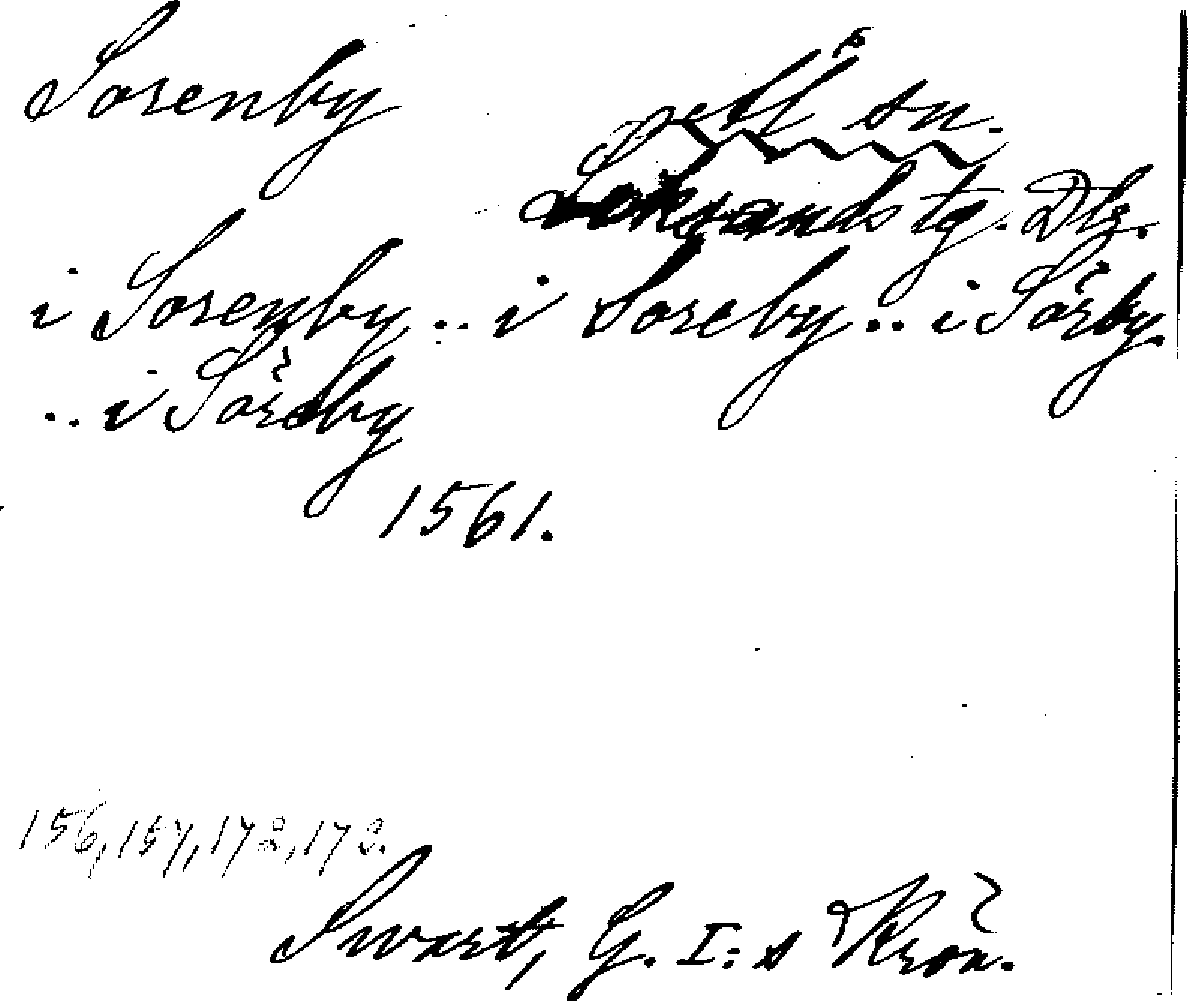 Sorenby
Ål sn.
Leksands tg. Dlr.
i Sorenby .. i Soreby .. i Sörby.
.. i Söreby
1561.
156, 157, 172, 173.
Swart, G. I:s Krön.